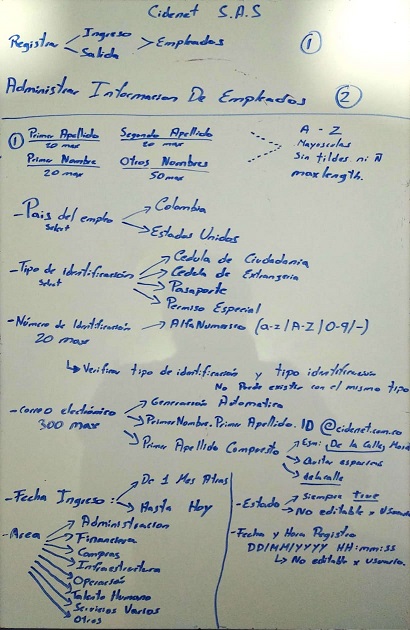 Cidenet S.A.S
Registrar Ingreso Salida Empleados 1
Administrar Informacion De Empleados 2
1 Primer Apellido 20 max Segundo Apellido 20 max
Primer Nombre 20 max Otros Nombres 50 max
A - Z
Mayusculas
Sin tildes ni Ñ
max length.
- Pais del empleo select
Colombia
Estados Unidos
- Tipo de identificación select
Cedula de Ciudadania
Cedula de Extrangeria
Pasaporte
Permiso Especial
- Número de Identificación 20 max
Alfa Numerico (a-z/A-Z/0-9/-)
Verificar tipo de identificación y tipo identificación
No Puede existir con el mismo tipo
- correo electrónico 300 max
Generación Automatica
Primer Nombre. Primer Apellido. ID @cidenet.com.co
Primer Apellido Compuesto
Esm: De la Calle,
Quitar espacios
delacalle
- Fecha Ingreso:
De 1 Mes Atras
Hasta Hoy
- Area
Administracion
Financiera
Compras
Infraestructura
Operación
Talento Humano
Servicios Varios
Otros
- Estado
Siempre true
No editable x Usuario
- Fecha y Hora Registro
DD/MM/YYYY HH:mm:ss
No editable x usuario.